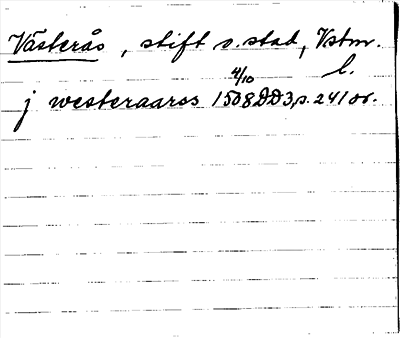 Västerås, stift o. stad, Vstm.
l.
j westeraarss 4/10 1508 DD3, s. 241 or.